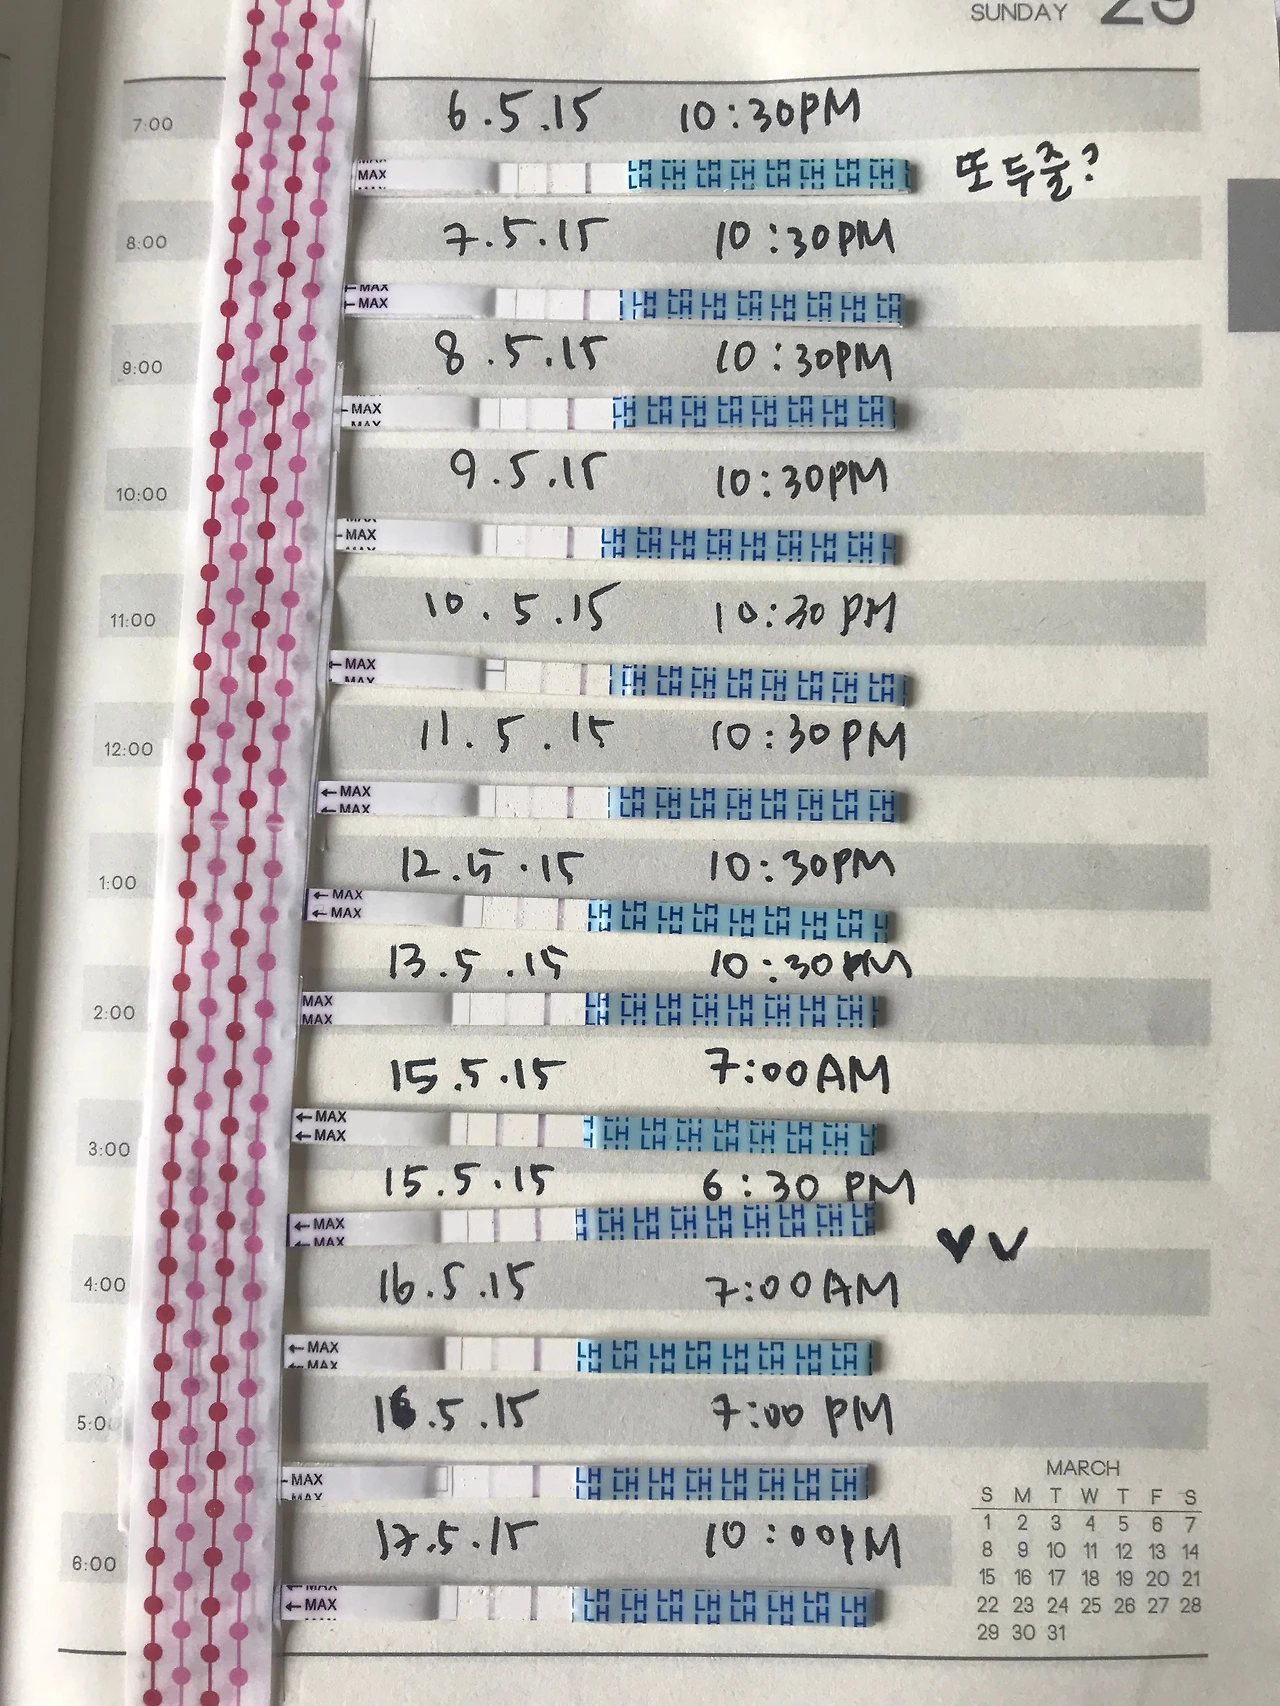 SUNDAY 29
7:00 6.5.15 10:30PM
MAX
MAX
MAX
LH LH LH LH LH LH LH LH
LH LH LH LH LH LH LH LH
또 두줄?
8:00 7.5.15 10:30PM
←MAX
←MAX
LH LH LH LH LH LH LH LH
9:00 8.5.15 10:30PM
←MAX
MAX
LH LH LH LH LH LH LH LH
10:00 9.5.15 10:30PM
MAX
←MAX
MAX
LH LH LH LH LH LH LH LH
11:00 10.5.15 10:30 PM
←MAX
MAX
LH LH LH LH LH LH LH LH
12:00 11.5.15 10:30PM
←MAX
←MAX
LH LH LH LH LH LH LH LH
1:00 12.5.15 10:30PM
←MAX
←MAX
LH LH LH LH LH LH LH LH
13.5.15 10:30PM
2:00 MAX
MAX
LH LH LH LH LH LH LH LH
15.5.15 7:00AM
3:00 ←MAX
←MAX
LH LH LH LH LH LH LH LH
15.5.15 6:30 PM
←MAX
←MAX
LH LH LH LH LH LH LH LH
4:00 16.5.15 7:00AM
←MAX
←MAX
LH LH LH LH LH LH LH LH
5:00 16.5.15 7:00 PM
MAX
MAX
LH LH LH LH LH LH LH LH
6:00 17.5.15 10:00PM
←MAX
←MAX
LH LH LH LH LH LH LH LH
MARCH
S M T W T F S
1 2 3 4 5 6 7
8 9 10 11 12 13 14
15 16 17 18 19 20 21
22 23 24 25 26 27 28
29 30 31